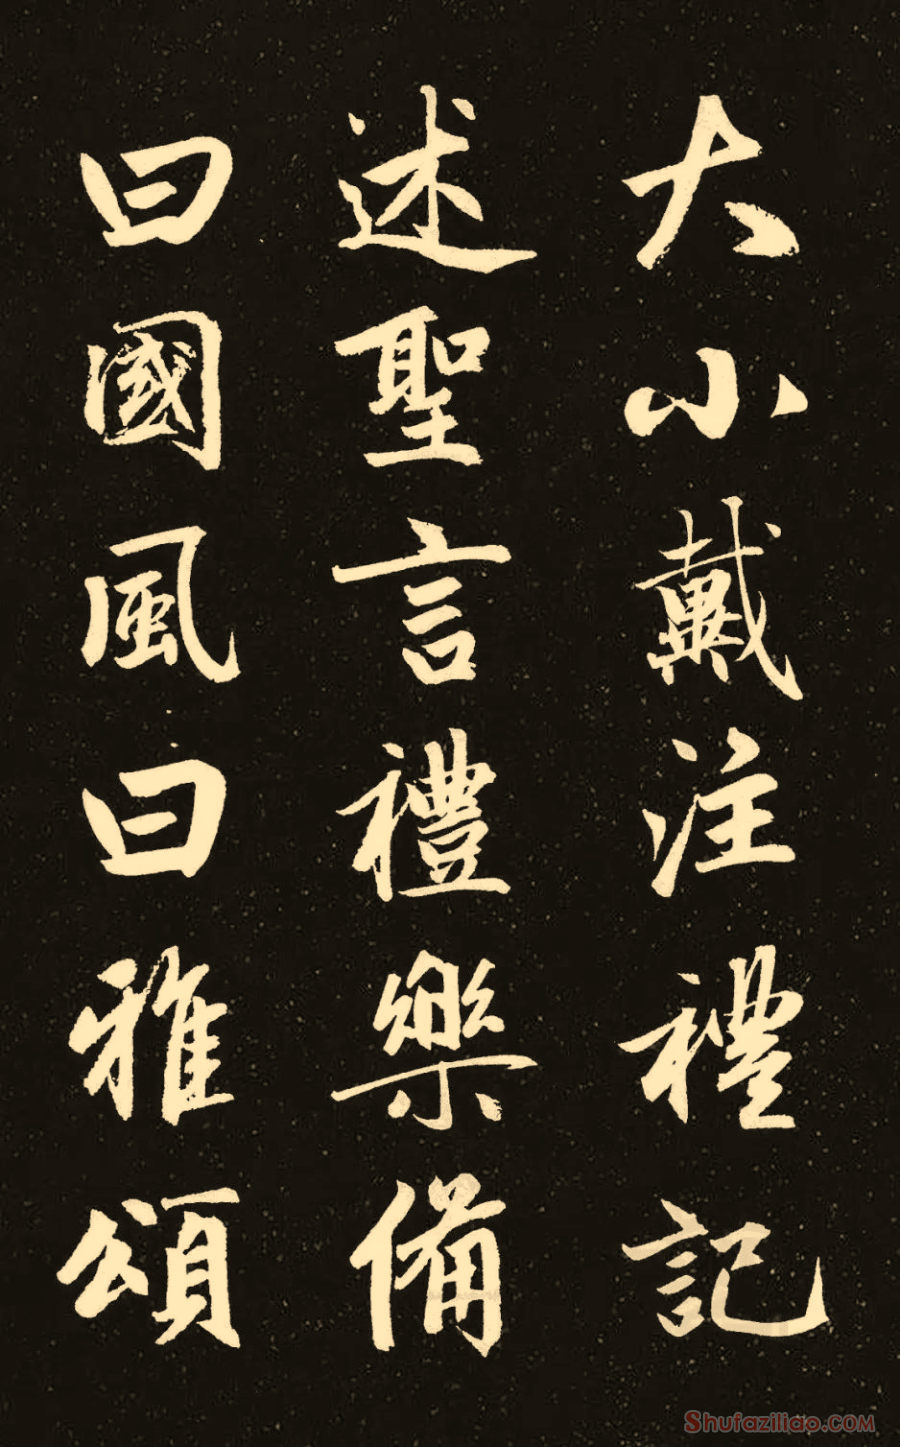 大小戴注禮記
述聖言禮樂備
曰國風曰雅頌
Shufaziliao.COM